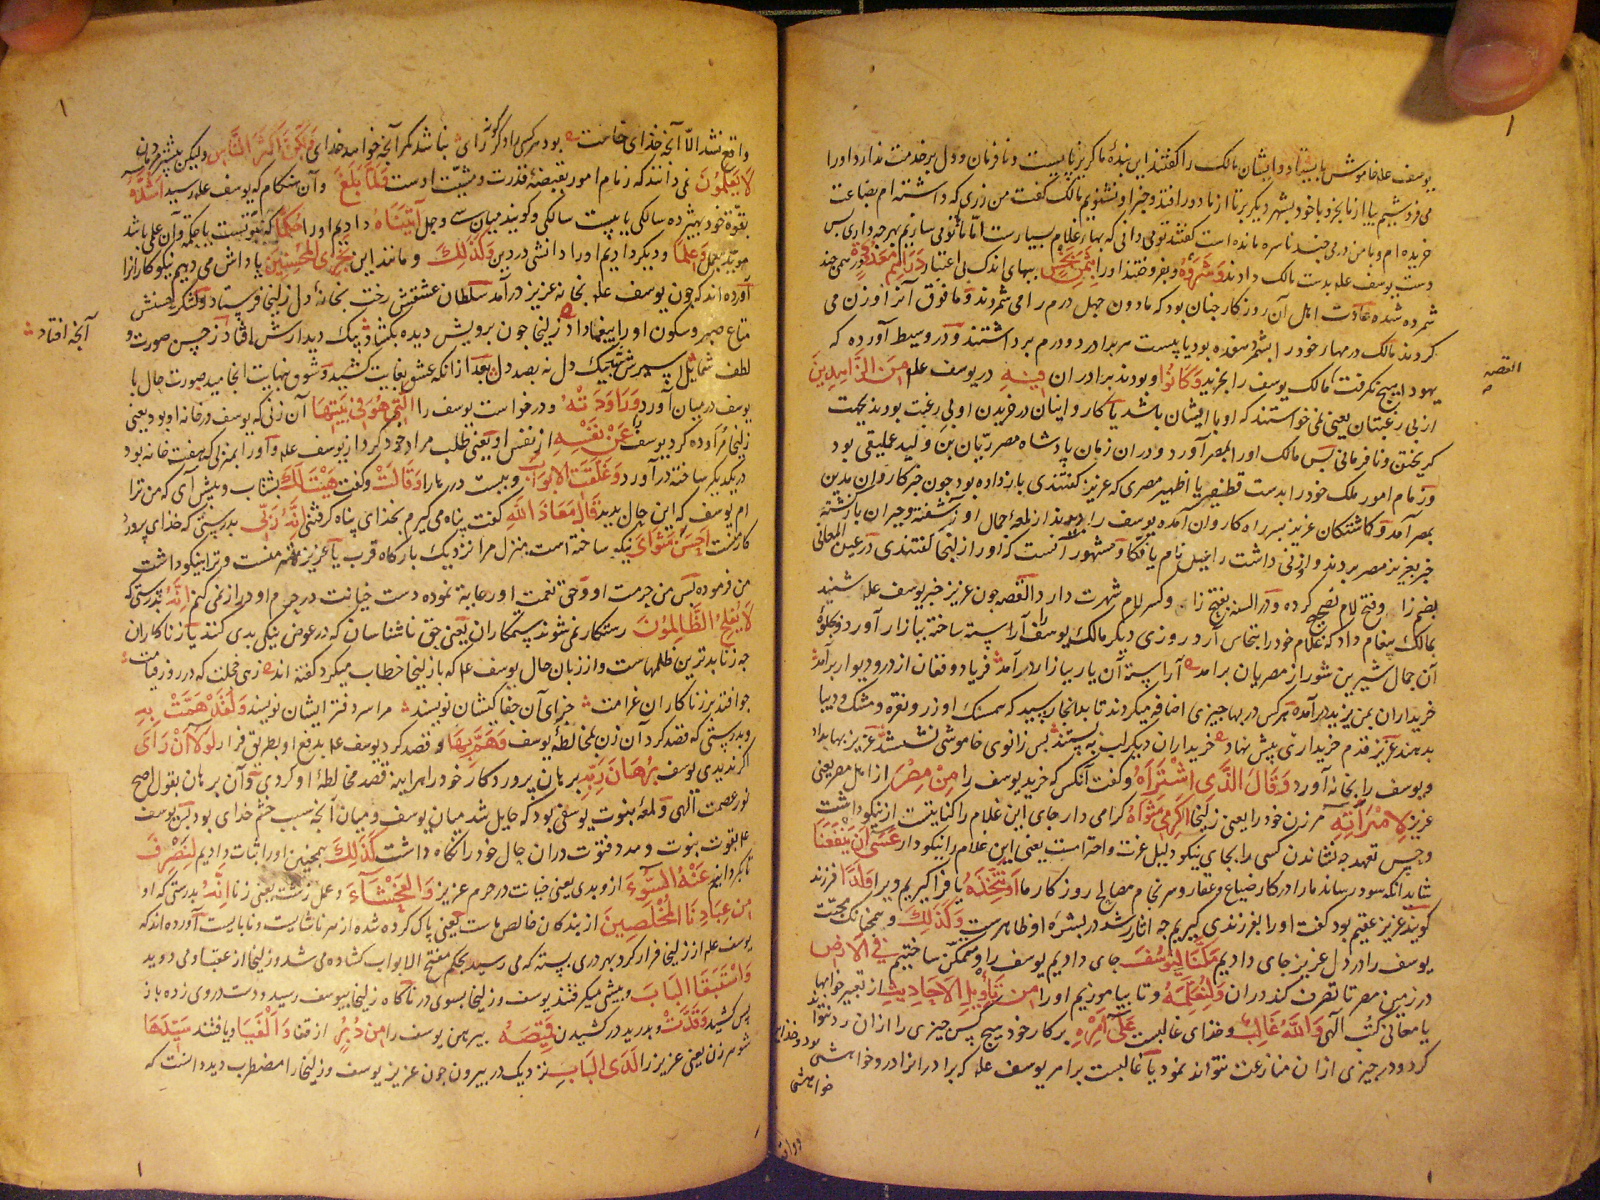 یوسف علم خاموش می‌بود و ایشان مالک را گفتند این بندهٔ ما گریزپایست و نافرمان و دل بر خدمت ندارد او را
می‌فروشیم بیا از ما بخر و با خود بشهر دیگر بر تا از ما دور افتد و خبر او نشنویم مالک گفت من زری که داشته‌ام بضاعت
خریده‌ام و با من درمی چند ناسره مانده است گفتند تو می‌دانی که بهای غلام بسیارست اما با تو می‌سازیم بهرچه داری پس
دست یوسف علم بدست مالک دادند وَشَرَوْهُ و بفروختند او را بِثَمَنٍ بَخْسٍ ببهای اندک بی اعتبار دَرَاهِمَ مَعْدُودَةٍ درمی چند
شمرده شده عادت اهل آن روزگار چنان بود که مادون چهل درم را می‌شمردند و مافوق آنرا وزن می
کردند مالک در مهار خود را بشمرد هفده بود یا بیست برادر دو درم برداشتند و در وسیط آورده که
یهودا هیچ نگرفت مالک یوسف را بخرید وَكَانُوا و بودند برادران فِيهِ در یوسف علم مِنَ الزَّاهِدِينَ
از بی رغبتان یعنی نمی‌خواستند که او با ایشان باشد یا کاروانیان در خریدن او بی رغبت بودند بجهت
گریختن و نافرمانی پس مالک او را بمصر آورد و در آن زمان پادشاه مصر ریان بن ولید عملیقی بود
و زمام امور ملک خود را بدست قطفیر یا اظفیر مصری که عزیز گفتندی باز داده بود چون خبر کاروان مدین
بمصر آمد و گماشتگان عزیز بسر راه کاروان آمده یوسف را دیدند از لمعهٔ جمال او آشفته و حیران بازگشته
خبر بعزیز مصر بردند و او زنی داشت راعیل نام یا فکا و مشهور آنست که او را زلیخا گفتندی در عین المعانی
بضم زا و فتح لام تصحیح کرده و در السنه بفتح زا و کسر لام شهرت دارد القصه چون عزیز خبر یوسف علم شنید
بمالک پیغام داد که غلام خود را بنخاس آرد روزی دیگر مالک یوسف را آراسته ساخته ببازار آورد و جلوهٔ
آن جمال شیرین شور از مصریان برآمد آراسته آن یار ببازار درآمد فریاد و فغان از در و دیوار برآمد
خریداران بمن یزید درآمده هرکس در بها چیزی اضافه می‌کردند تا بدانجا رسید که همسنگ او زر و نقره و مشک و دیبا
بدهند عزیز قدم خریداری پیش نهاد خریداران دیگر لب ببستند پس زانوی خاموشی نشستند عزیز بها بداد
و یوسف را بخانه آورد وَقَالَ الَّذِي اشْتَرَاهُ و گفت آنکس که خرید یوسف را مِنْ مِصْرَ از اهل مصر یعنی
عزیز لِامْرَأَتِهِ مر زن خود را یعنی زلیخا أَكْرِمِي مَثْوَاهُ گرامی دار جای این غلام را کنایتست از نیکو داشت
و حسن تعهد چه نشاندن کسی را بجای نیکو دلیل عزت و احترامست یعنی این غلام را نیکو دار عَسَى أَنْ يَنْفَعَنَا
شاید آنکه سود رساند ما را در کار ضیاع و عقار و سرانجام مصالح روزگار ما أَوْ نَتَّخِذَهُ یا فراگیریم ویرا وَلَدًا فرزند
گویند عزیز عقیم بود گفت او را بفرزندی گیریم چه آثار رشد از بشرهٔ او ظاهرست وَكَذَلِكَ و همچنانکه محبت
یوسف را در دل عزیز جای دادیم مَكَّنَّا لِيُوسُفَ جای دادیم یوسف را و ممکن ساختیم فِي الْأَرْضِ
در زمین مصر تا تصرف کند در آن وَلِنُعَلِّمَهُ و تا بیاموزیم او را مِنْ تَأْوِيلِ الْأَحَادِيثِ از تعبیر خوابها
یا معانی کتب الهی وَاللَّهُ غَالِبٌ و خدای غالبست عَلَى أَمْرِهِ بر کار خود هیچ کس چیزی را از آن رد نتواند
کرد و در چیزی از آن منازعت نتواند نمود یا غالبست بر امر یوسف علم که برادر از او خواهشی
خواهشی
القصه
واقع نشد الا آنچه خدای خواست بود هرکسی را دگرگونه رای نباشد مگر آنچه خواهد خدای وَلَكِنَّ أَكْثَرَ النَّاسِ ولیکن بیشتر مردمان
لَا يَعْلَمُونَ نمی‌دانند که زمام امور بقبضهٔ قدرت و مشیت اوست وَلَمَّا بَلَغَ و آن هنگام که یوسف علم رسید أَشُدَّهُ
بقوة خود هیژده سالگی یا بیست سالگی و گویند میان سی و چهل آتَيْنَاهُ دادیم او را حُكْمًا که نبوتست یا حکمة و آن علمی باشد
مؤید بعمل وَعِلْمًا و دیگر دادیم او را دانشی در دین وَكَذَلِكَ و مانند این نَجْزِي الْمُحْسِنِينَ پاداش می‌دهیم نیکوکارانرا
آورده‌اند که چون یوسف علم بخانه عزیز درآمد سلطان عشقش رخت بخانهٔ دل زلیخا فرستاد و لشکر حسنش
متاع صبر و سکون او را بیغما داد زلیخا چون برویش دیده بگشاد بیک دیدارش افتاد ز حسن صورت و
لطف شمایل اسیرش شد بیک دل نه بصد دل بعد از آنکه عشق بغایت کشید و شوق بنهایت انجامید صورت حال با
یوسف در میان آورد وَرَاوَدَتْهُ و درخواست یوسف را الَّتِي هُوَ فِي بَيْتِهَا آن زنی که یوسف در خانه او بود یعنی
زلیخا مراوده کرد یوسف را عَنْ نَفْسِهِ از نفس او یعنی طلب مراد خود کرد از یوسف علم و او را بمنزلی که هفت خانه بود
در یکدیگر ساخته درآورد وَغَلَّقَتِ الْأَبْوَابَ و ببست درها را وَقَالَتْ و گفت هَيْتَ لَكَ بشتاب و پیش آی که من ترا
ام یوسف که این حال بدید قَالَ مَعَاذَ اللَّهِ گفت پناه می‌گیرم بخدای پناه گرفتنی إِنَّهُ رَبِّي بدرستی که خدای پروردگار
کار منست أَحْسَنَ مَثْوَايَ نیکو ساخته است منزل مرا نزدیک بارگاه قرب یا عزیز سید منست و ترا بنیکو داشت
من فرموده پس من حرمت او و حق نعمت او رعایة نموده دست خیانت در حرم او دراز نمی‌کنم إِنَّهُ بدرستی که
لَا يُفْلِحُ الظَّالِمُونَ رستگار نمی‌شوند ستمکاران یعنی حق ناشناسان که در عوض نیکی بدی کنند یا زناکاران
چه زنا بدترین ظلمهاست و از زبان حال یوسف علم که با زلیخا خطاب میکرد گفته‌اند زهی خجلت که در روز قیامت
چو افتد بر زناکاران غرامت جزای آن جفاکیشان نویسند مرا سردفتر ایشان نویسند وَلَقَدْ هَمَّتْ بِهِ
و بدرستی که قصد کرد آن زن بمخالطهٔ یوسف وَهَمَّ بِهَا و قصد کرد یوسف علم بدفع او بطریق فرار لَوْلَا أَنْ رَأَى
اگر ندیدی یوسف بُرْهَانَ رَبِّهِ برهان پروردگار خود را هرآینه قصد مخالطهٔ او کردی و آن برهان بقول اصح
نور عصمت الهی و لمعهٔ نبوت یوسفی بود که حایل شد میان یوسف و میان آنچه سبب خشم خدای بود پس یوسف
علم بقوت نبوت و مدد فتوت در آن حال خود را نگاه داشت كَذَلِكَ همچنین او را ثبات دادیم لِنَصْرِفَ
تا بگردانیم عَنْهُ السُّوءَ ازو بدی یعنی خیانت در حرم عزیز وَالْفَحْشَاءَ و عمل زشت یعنی زنا إِنَّهُ بدرستی که او
مِنْ عِبَادِنَا الْمُخْلَصِينَ از بندگان خالص ماست یعنی پاک کرده شده از هر ناشایست و نابایست آورده‌اند که
یوسف علم از زلیخا فرار کرد بهر دری بسته که می‌رسید بحکم مفتح الابواب گشاده می‌شد و زلیخا از عقب او می‌دوید
وَاسْتَبَقَا الْبَابَ و پیشی میگرفتند یوسف و زلیخا بسوی در ناگاه زلیخا بیوسف رسید و دست در وی زده باز
پس کشید وَقَدَّتْ و بدرید در کشیدن قَمِيصَهُ پیرهن یوسف را مِنْ دُبُرٍ از قفا وَأَلْفَيَا و یافتند سَيِّدَهَا
شوهر زن یعنی عزیز را لَدَى الْبَابِ نزدیک در بیرون چون عزیز یوسف و زلیخا را مضطرب دید دانست که
آنچه افتاد